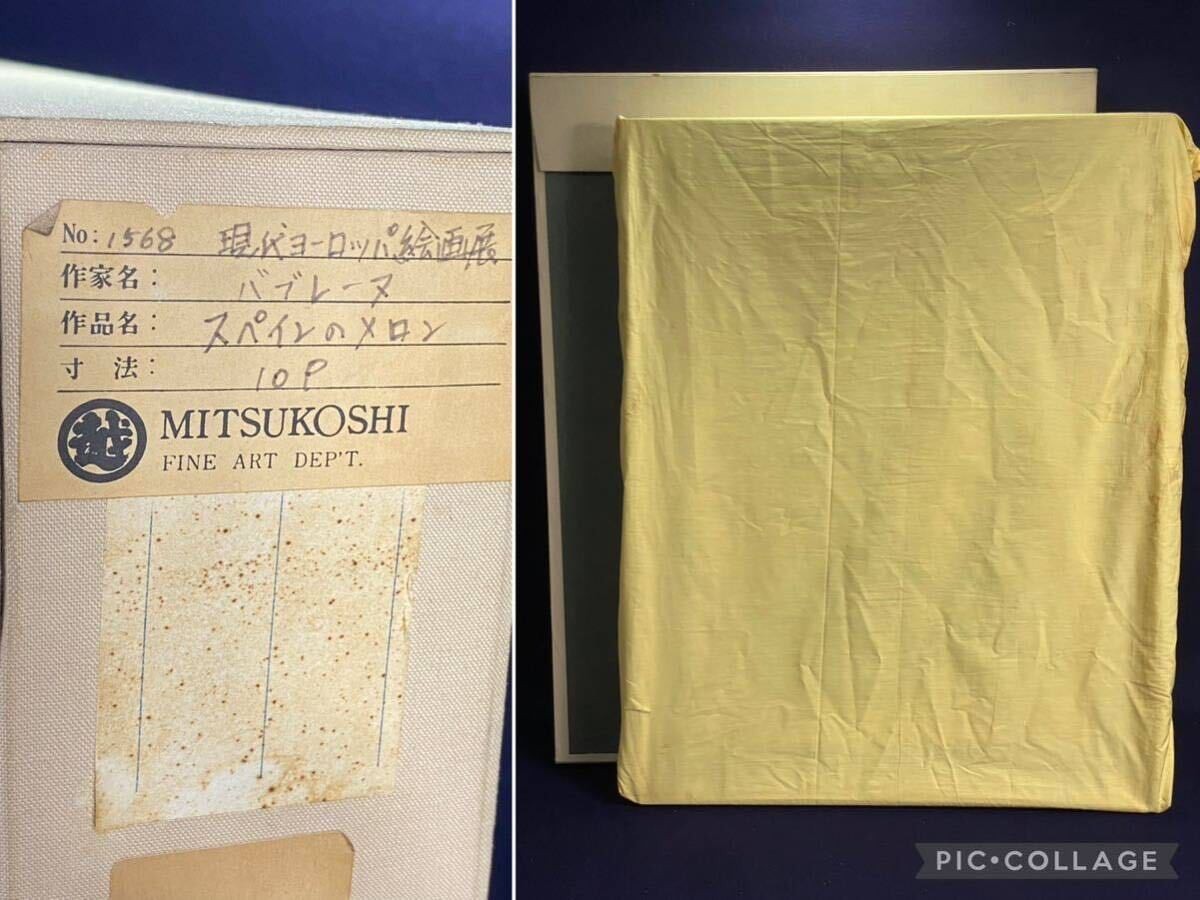 No: 1568 現代ヨーロッパ絵画展
作家名: バブレーヌ
作品名: スペインのメロン
寸法: 10P
越 MITSUKOSHI
FINE ART DEP'T.
PIC•COLLAGE